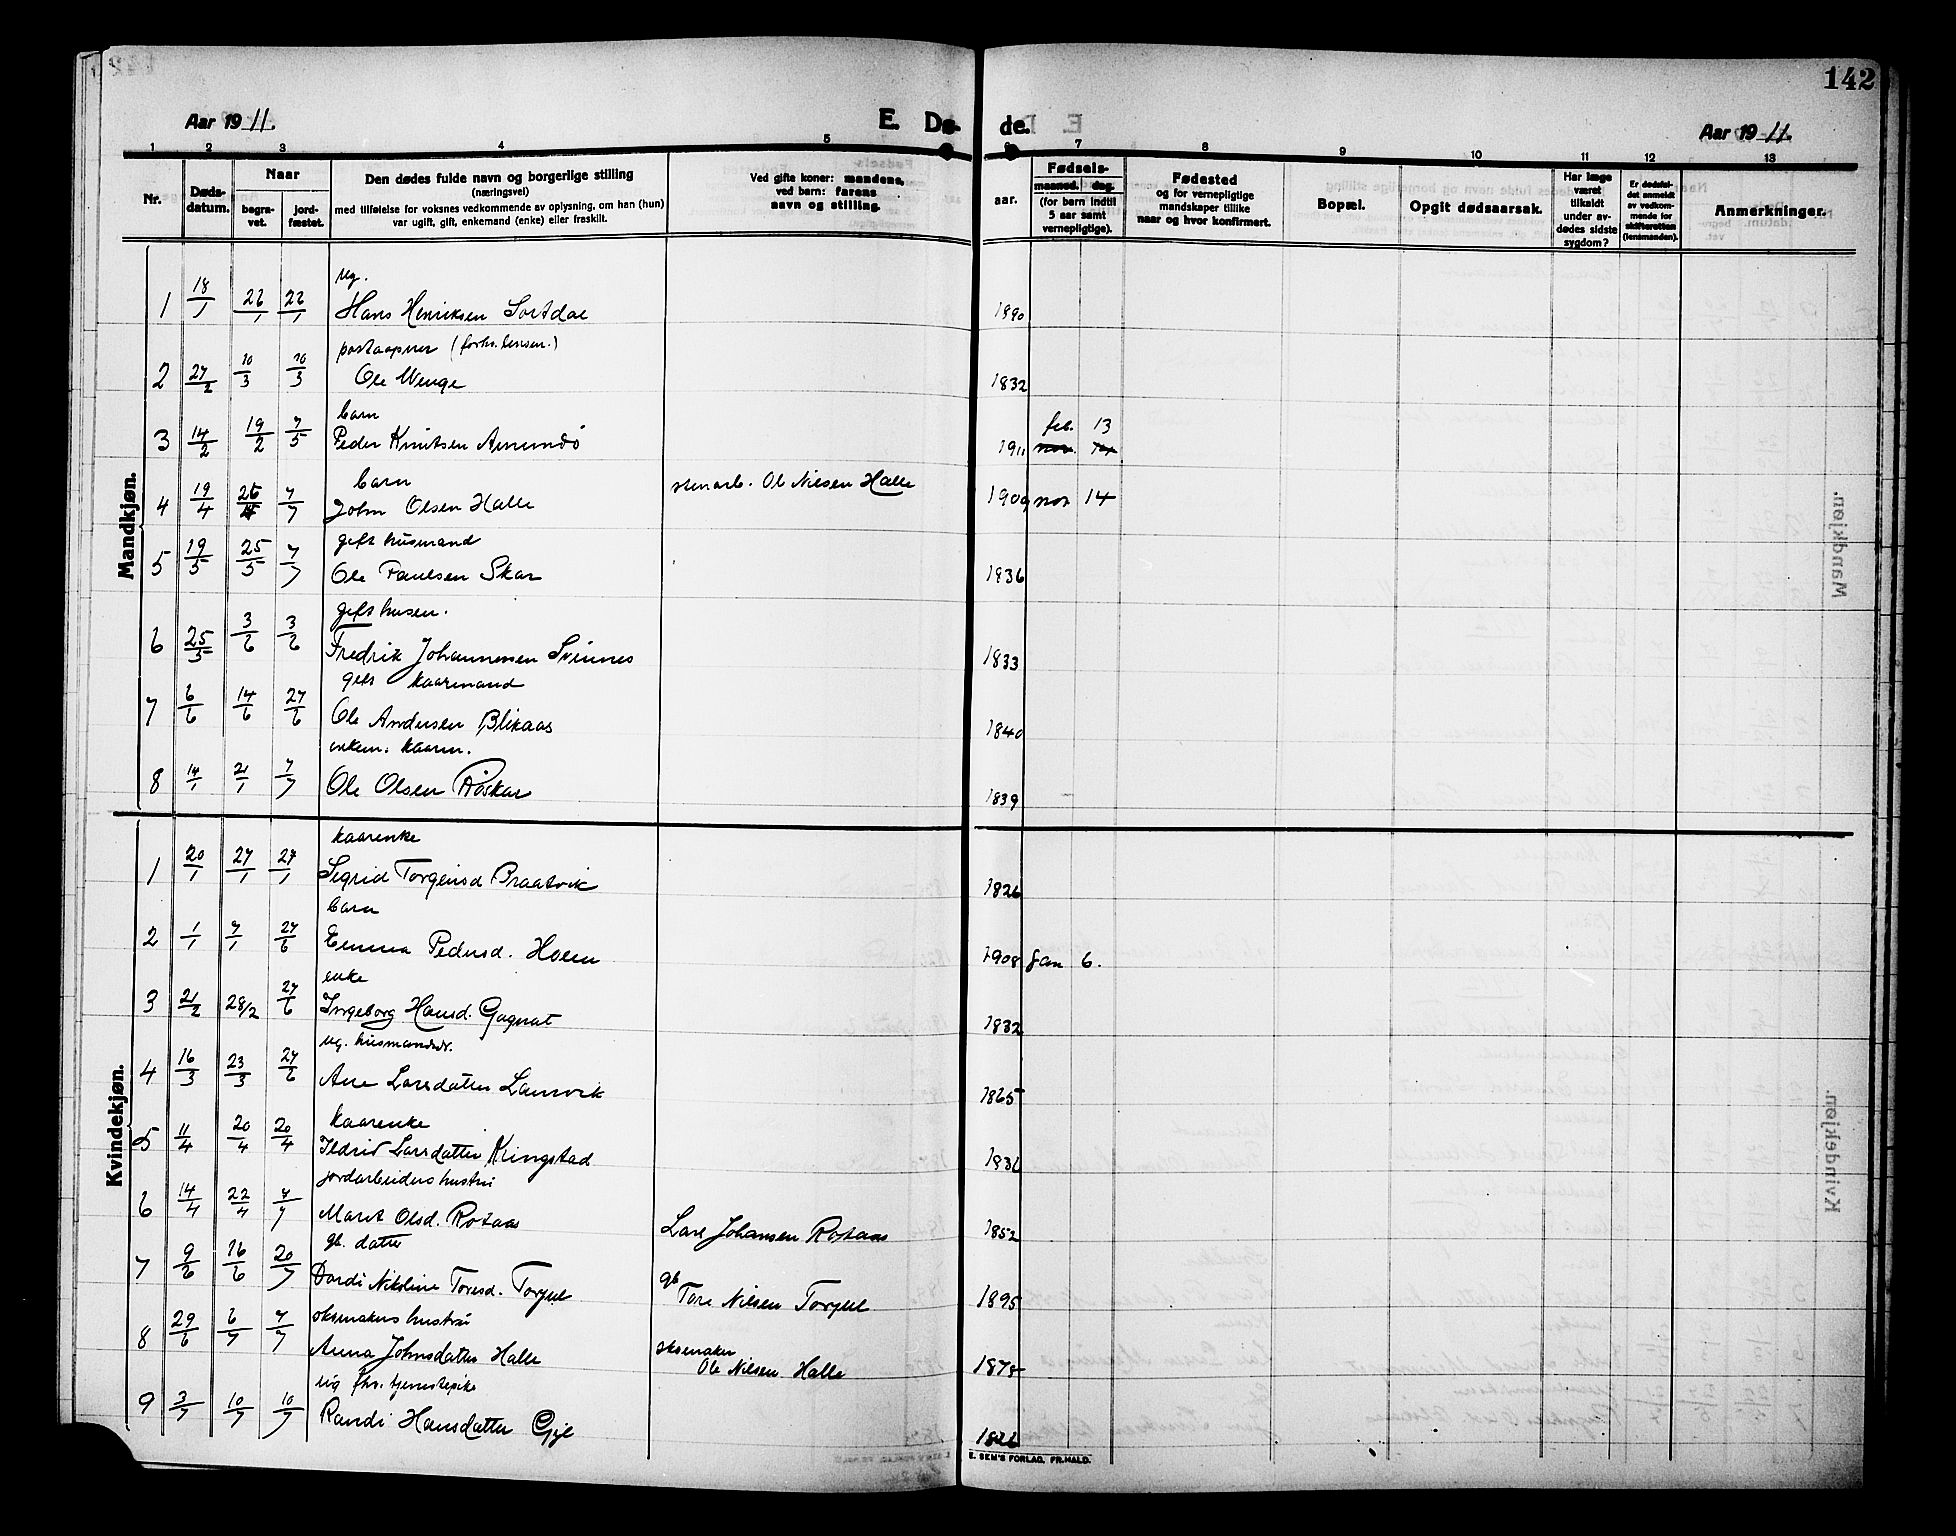 142
Aar 19 11.
E. Dø-
de.
Aar 19 11.
1 2 3 4 5 7 8 9 10 11 12 13
Nr.
Døds-
datum.
Naar
begra-
vet.
jord-
fæstet.
Den dødes fulde navn og borgerlige stilling
(næringsvei)
med tilføielse for voksnes vedkommende av oplysning, om han (hun)
var ugift, gift, enkemand (enke) eller fraskilt.
Ved gifte koner: mandens,
ved børn: farens
navn og stilling.
aar.
Fødsels-
maaned. dag.
(for børn indtil
5 aar samt
vernepligtige).
Fødested
og for vernepligtige
mandskaper tillike
naar og hvor konfirmert.
Bopæl.
Opgit dødsaarsak.
Har læge
været
tilkaldt
under av-
dødes sidste
sygdom?
Er dødsfal-
det anmeldt
av vedkom-
mende for
skifteretten
(lensmanden).
Anmerkninger.
Mandkjøn.
ug.
1 18/1 22/1 22/1 Hans Henriksen Sortdal 1890
postaapner (forhv. lensm.)
2 27/2 10/3 10/3 Ole Wenge 1832
barn feb. 13
3 14/2 19/2 7/5 Peder Knutsen 1911
barn stenarb. Ole Nilsen Halle
4 19/4 25/4 7/7 John Olsen Halle 1909 nov 14
gift husmand
5 19/5 25/5 7/7 Ole Paulsen Skar 1836
gift husm.
6 25/5 3/6 3/6 Fredrik Johannessen Svinnes 1833
gift kaarmand
7 6/6 14/6 27/6 Ole Andersen Blikaas 1840
enkem. kaarm.
8 14/1 21/1 7/7 Ole Olsen Røskar 1839
Kvindekjøn.
kaarenke
1 20/1 27/1 27/1 Sigrid Torgensd Braatvik 1826
barn
2 1/1 7/1 27/6 Emma Pedersd. Hoem 1908 jan 6.
enke
3 21/2 28/2 27/6 Ingeborg Hansd. Gagnat 1832
ug. husmandsdr.
4 16/3 23/3 27/6 Ane Larsdatter Lansvik 1865
kaarenke
5 11/4 20/4 20/4 Ildrid Larsdatter Kringstad 1831
jordarbeiders hustru
6 14/4 22/4 7/7 Marit Olsd. Rotaas Lars Johansen Rotaas 1852
gb. datter
7 9/6 16/6 20/7 Dordi Nikoline Toresd. Torjul gb Tore Nilsen Torjul 1895
skomakers hustru
8 29/6 6/7 7/7 Anna Johnsdatter Halle skomaker Ole Nilsen Halle 1875
ug fhv. tjenestepike
9 3/7 10/7 10/7 Randi Hansdatter Gjl 1826
E. SEM'S FORLAG, FR.HALD.